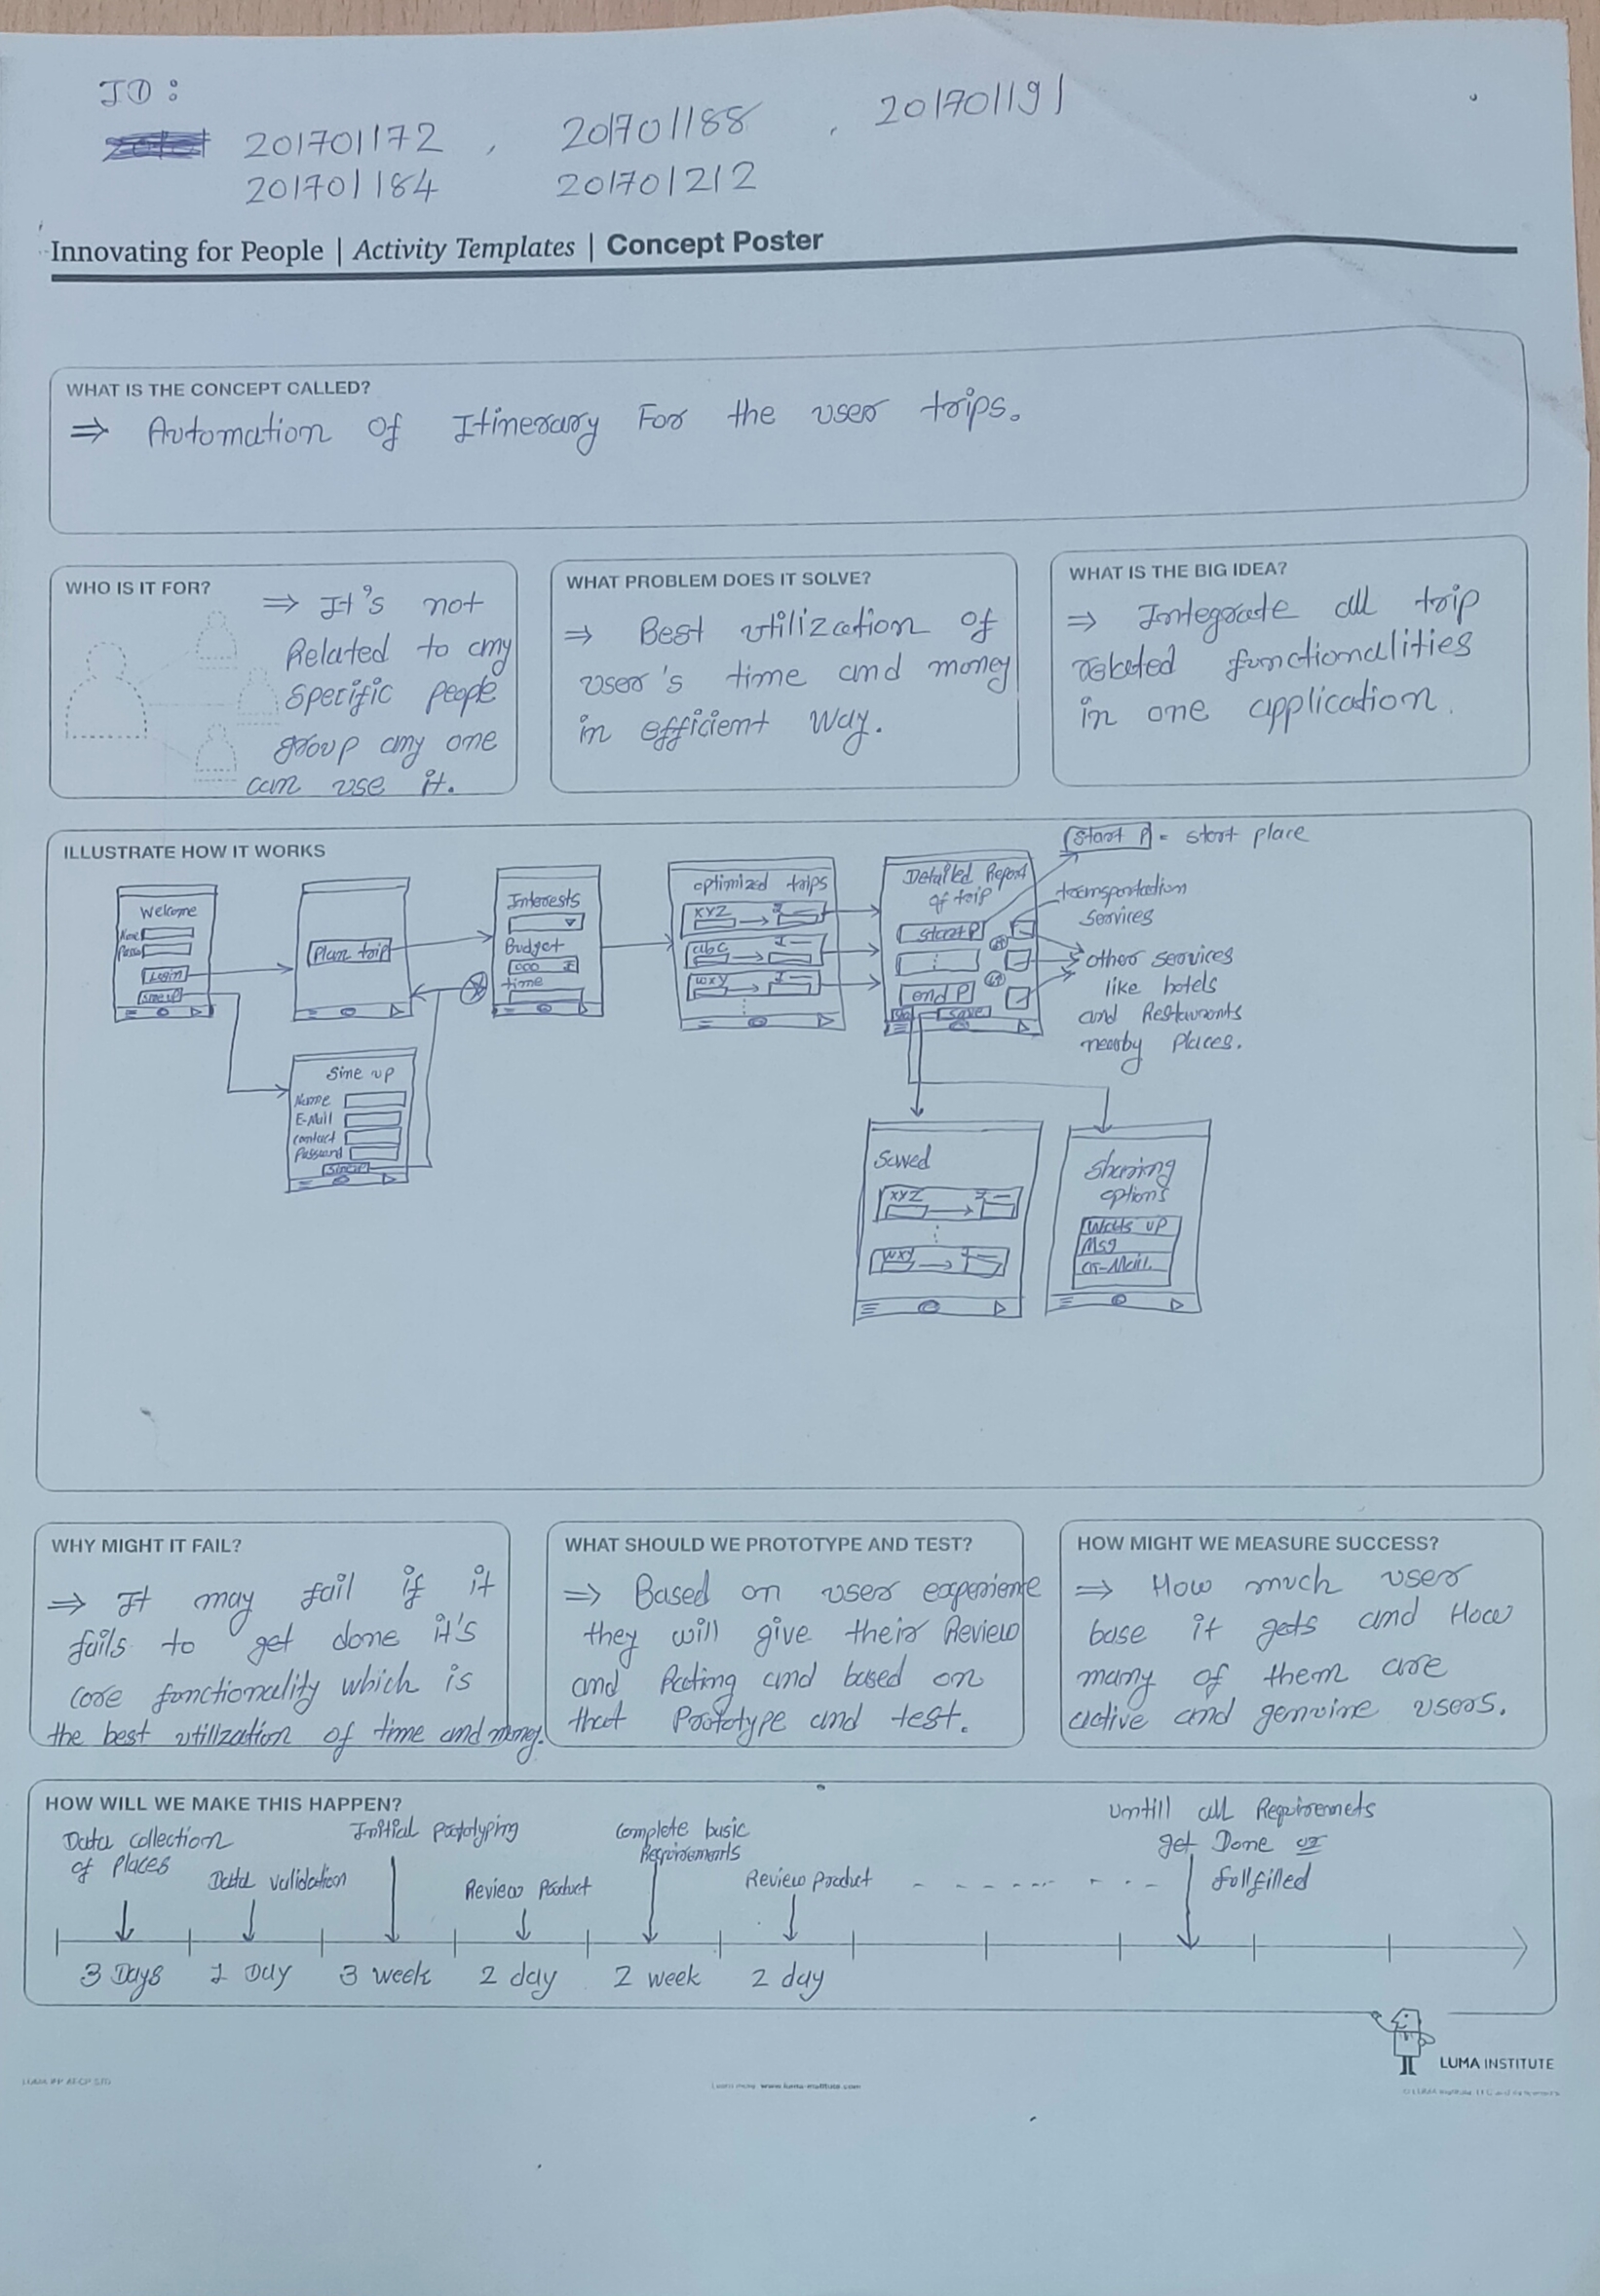 ID :
201701172 , 201701188 , 201701191
201701184 201701212
Innovating for People | Activity Templates | Concept Poster
WHAT IS THE CONCEPT CALLED?
⇒ Automation of Itinerary For the user trips.
WHO IS IT FOR?
⇒ It's not
Related to any
specific people
group any one
can use it.
WHAT PROBLEM DOES IT SOLVE?
⇒ Best utilization of
user's time and money
in efficient way.
WHAT IS THE BIG IDEA?
⇒ Integrate all trip
related functionalities
in one application.
ILLUSTRATE HOW IT WORKS
Welcome
Login
Sine up
Plan trip
Interests
Budget
time
optimized trips
XYZ
abc
wxy
Detailed Report
of trip
start P
end P
save
Start P = start place
transportation
services
other services
like hotels
and Restaurants
nearby places.
Sine up
Name
E-Mail
contact
Password
Sine up
Saved
XYZ
wxy
Sharing
options
Watts up
Msg
G-Mail
WHY MIGHT IT FAIL?
⇒ It may fail if it
fails to get done it's
core functionality which is
the best utillzation of time and money.
WHAT SHOULD WE PROTOTYPE AND TEST?
⇒ Based on user experience
they will give their Review
and Rating and based on
that Prototype and test.
HOW MIGHT WE MEASURE SUCCESS?
⇒ How much user
base it gets and How
many of them are
active and genuine users.
HOW WILL WE MAKE THIS HAPPEN?
Data collection
of places
Data validation
Initial prototyping
Review Product
Complete basic
Requirements
Review product
Untill all Requiremets
get Done or
fullfilled
3 Days 1 Day 3 week 2 day 2 week 2 day
LUMA INSTITUTE
www.luma-institute.com